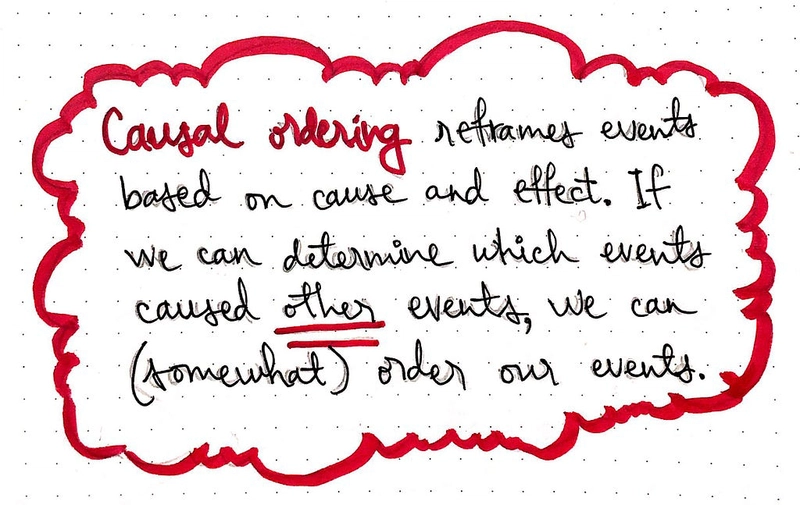 Causal ordering reframes events
based on cause and effect. If
we can determine which events
caused other events, we can
(somewhat) order our events.